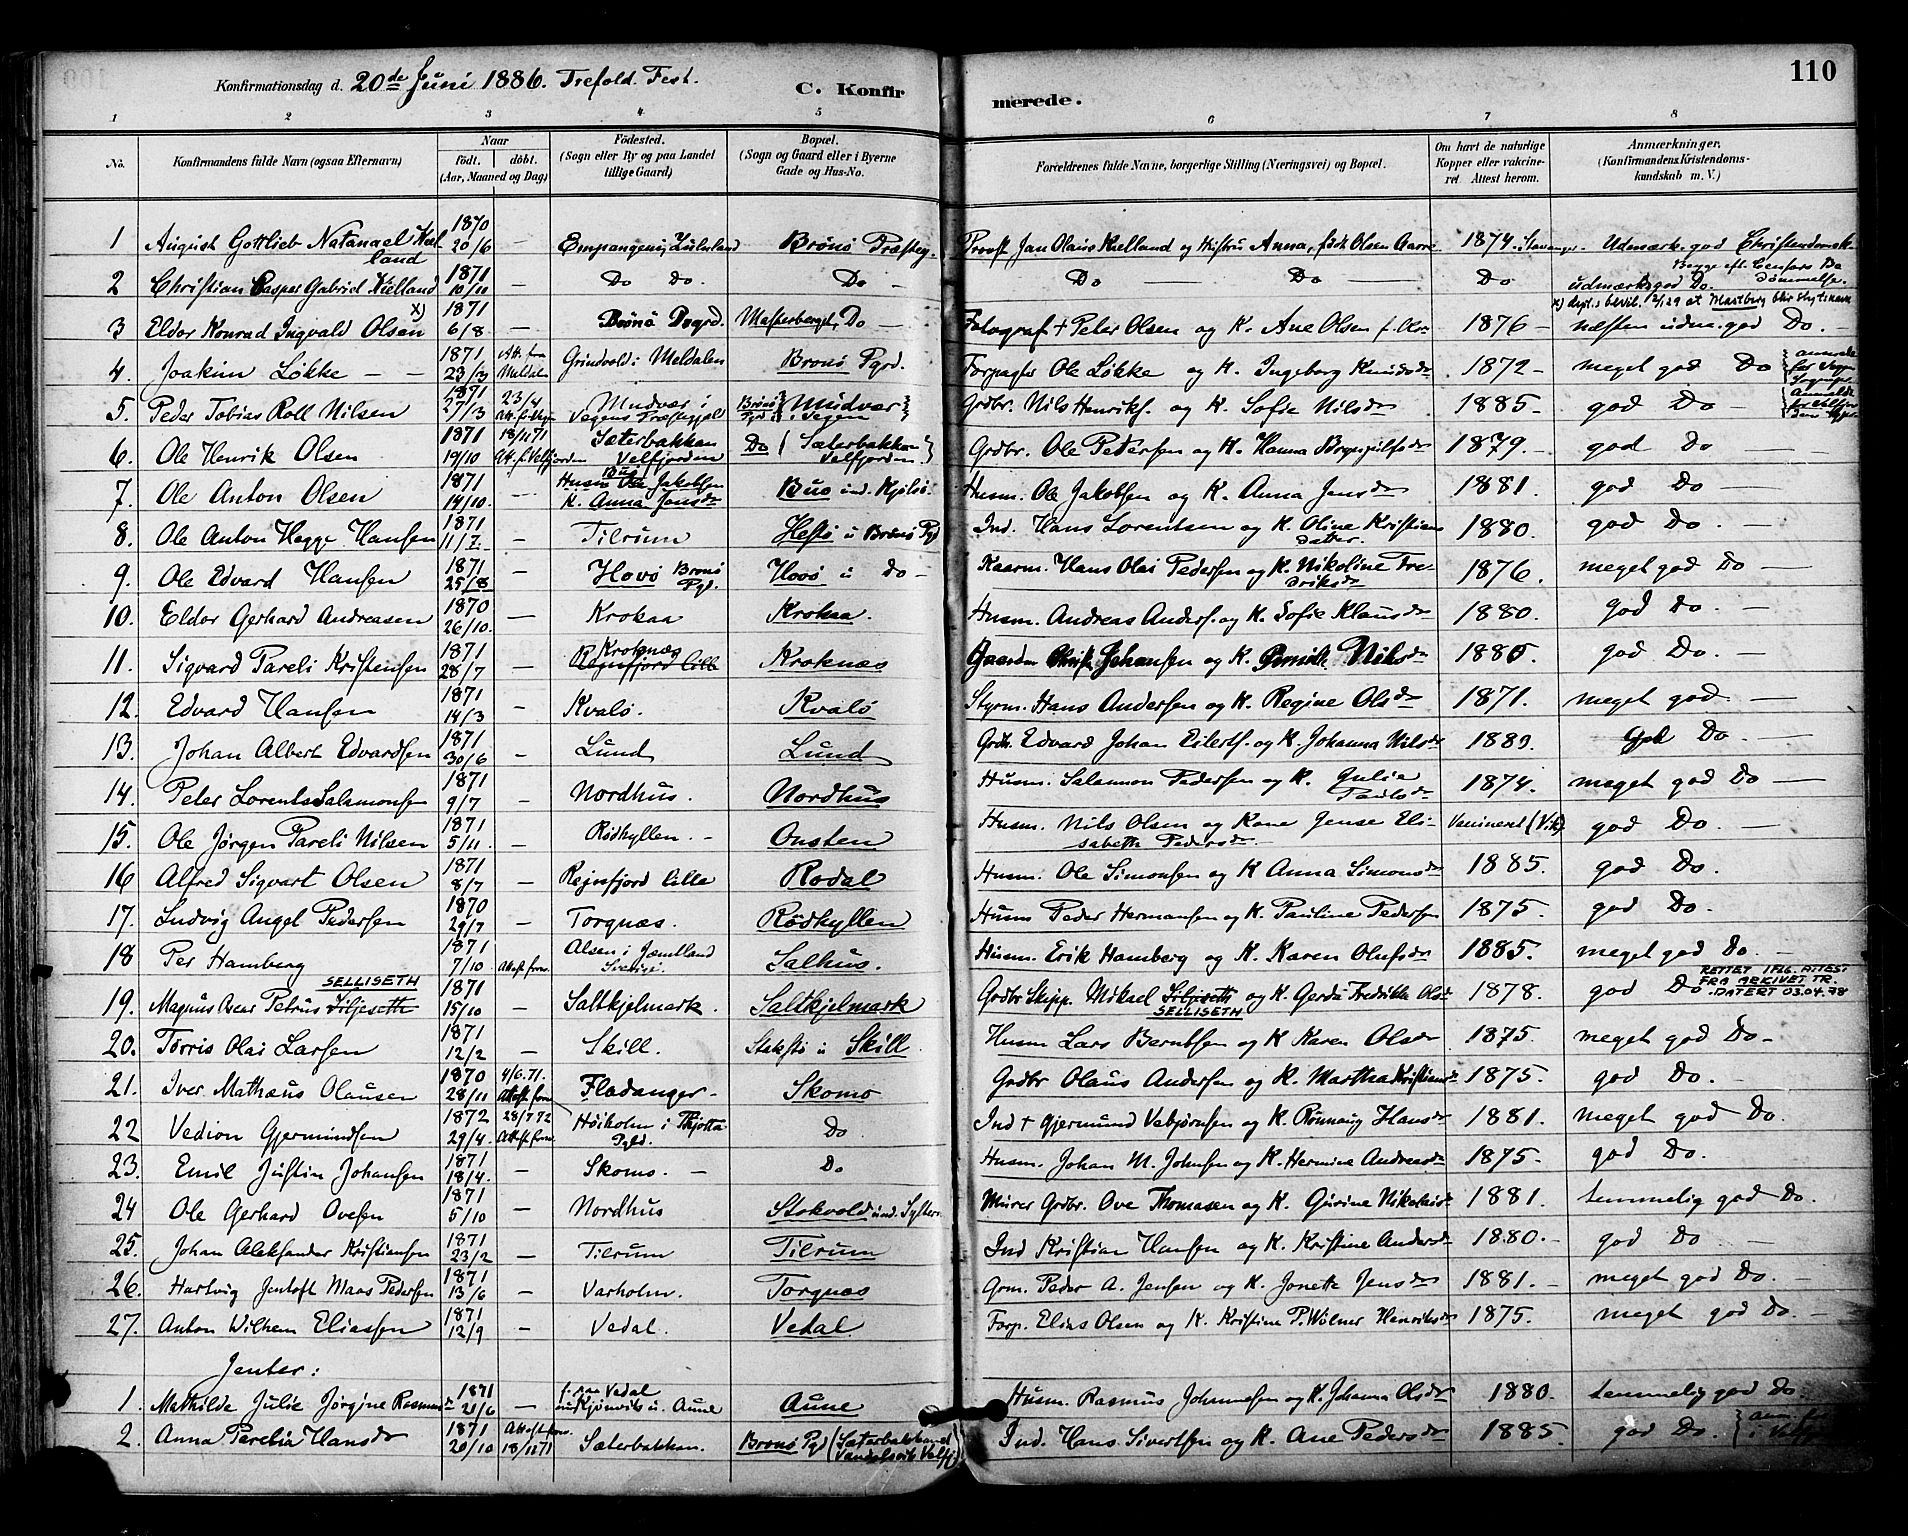 110
Konfirmationsdag d. 20de Juni 1886. Trefold. Fest.
C. Konfirmerede.
1 2 3 4 5 6 7 8
No. Konfirmandens fulde Navn (ogsaa Efternavn) Naar født. døbt. (Aar, Maaned og Dag) Fødested. (Sogn eller By og paa Landet tillige Gaard) Bopæl. (Sogn og Gaard eller i Byerne Gade og Hus-No. Forældrenes fulde Navne, borgerlige Stilling (Næringsvei) og Bopæl. Om havt de naturlige Kopper eller vakcineret Attest herom. Anmærkninger, (Konfirmandens Kristendomskundskab m. V.)
1 August Gottlieb Natanael Kielland 1870 20/6 — Empangeni, Zululand Brönö Præsteg. Provst Jan Olaus Kielland og Hustru Anna, født Olsen 1874. Stavanger. Udmærk. god Christendomsk.
2 Christian Casper Gabriel Kielland 1871 10/11 — Do Do Do — Do — Do — Do udmærk. god Do. Begge eft. Censors Bedömmelse.
3 Eldor Konrad Ingvald Olsen x) 1871 6/8 — Brönö Pgrd. Do — Fotograf + Peter Olsen og K. Ane Olsen f. Ols 1876 — næsten udm. god Do. —
4. Joakim Løkke — — 1871 23/3 Att. fra Meldal Grindvold i Meldalen Brönö Pgrd. Forpagter Ole Løkke og K. Ingeborg Knudsdr 1872 — meget god Do
5. Peder Tobias Roll Nilsen 1871 7/3 23/4 Mudvær i Vegens Præstegjæld Brönö Pgd Mudvær i Veggen Grdbr. Nils Henriks. og K. Sofie Nilsdr 1885 — god Do —
6. Ole Henrik Olsen 1871 19/10 18/11 71 Att. f. Velfjorden Sæterbakken Velfjorden Do (Sæterbakken Velfjorden) Grdbr. Ole Pedersen og K. Hanna Brynjulfsdr 1879. — god Do —
7. Ole Anton Olsen 1871 14/10. — Husm Ole Jakobsen K. Anna Jensdr Buö ind. Kjelsö. Husm. Ole Jakobsen og K. Anna Jensdr 1881. god Do —
8. Ole Anton Hegge Hansen 1871 11/7. — Tilrum Hestö u Brönö Pgd Ind. Hans Lorentsen og K. Oline Kristiansdatter. 1880. god Do. —
9. Ole Edvard Hansen 1871 25/8 — Hovö Brönö Pgd. Hovö u Do — Kaarm. Hans Olai Pedersen og K. Nikoline Fredriksdr 1876. meget god Do —
10. Eldor Gerhard Andreasen 1870 26/10. — Krokaa Krokaa. Husm. Andreas Anders. og K. Sofie Klausdr 1880. god Do. —
11. Sigvard Pareli Kristensen 1871 28/7 — Kroknæs Rejnsfjord lille Kroknæs Johansen og K. Nilsdr 1885. god Do. —
12. Edvard Hansen 1871 14/3 — Kvalö. Kvalö Styrm. Hans Andersen og K. Regine Olsdr 1871. meget god. —
13. Johan Albert Edvardsen 1871 30/6 — Lund Lund Grdb. Edvard Johan Eilerts. og K. Johanna Nilsdr 1880. god Do. —
14. Peter Lorents Salamonsen 1871 9/7 — Nordhus. Nordhus Husm. Salamon Pedersen og K. Julie Paulsdr 1874. meget god Do —
15. Ole Jørgen Pareli Nilsen 1871 5/11 — Rødhyllen. — Onsten Husm. Nils Olsen og Kone Jense Elisabeth Pedersdr. — god Do. —
16 Alfred Sigvart Olsen 1871 8/7 — Rejnsfjord lille Rodal Husm. Ole Simonsen og K Anna Simonsdr 1885. god Do.
17. Ludvig Angel Pedersen 1870 29/7 — Torgnæs. Rödhyllen Husm Peder Hermansen og K. Pauline Pedersen 1875. god Do.
18 Per Hamberg 1871 7/10 Attest forev. Alsen i Jæmtland Sverige. Salhus. Husm. Erik Hamberg og K. Karen Olufsdr 1885. meget god Do. —
19. Magnus Petrus Siljeseth SELLISETH 1871 15/10 — Saltkjelmark. Saltkjelmark Grdbr Skipp. Mikael Siljeseth SELLISETH og K. Gerda Fredrikke Olsdr 1878. god Do RETTET IFLG. ATTEST FRA ARKIVET TR. DATERT 03.04.78
20. Torris Olai Larsen 1871 12/2 — Skill. Skill Husm Lars Berntsen og K Karen Olsdr 1875. meget god Do —
21. Iver Mathæus Olausen 1870 28/11 4/6.71. Attest forev Fladanger — Skomo Grdbr Olaus Andersen og K. Martha Kristiansdr 1875. god Do. —
22 Vedion Gjermundsen 1872 29/4. 28/7 72 Attest forev. Høiholm i Thjotta Pgld. Do. Ind + Gjermund Vebjørnsen og K. Rönnaug Hansdr 1881. meget god Do.
23. Emil Justin Johansen 1871 18/4. — Skomo. — Do Husm. Johan M. Johnsen og K. Hermine Andreasdr 1875. god Do.
24 Ole Gerhard Ovesen 1871 5/10 — Nordhus Stokvold Murer Grdbr. Ove Thomasen og K. Gurine Nikolaisdr 1881. temmelig god Do.
25. Johan Aleksander Kristiansen 1871 23/2 — Tilrum Tilrum Ind Kristian Hansen og K. Kristine Andersdr 1880. — god Do —
26. Hartvig Jentoft Maas Pedersen 1871 13/6 — Varholm. Torgnæs Grm. Peder A. Jensen og K. Jonette Jensdr 1881. — meget god Do. —
27. Anton Wilhem Eliassen 1871 12/9 — Vedal. Vedal Forp. Elias Olsen og K. Kristine P. Wölner Henriksdr 1875. meget god Do. —
Jenter:
1. Mathilde Julie Jörgine Rasmusdr 1871 21/6 — f. paa Vedal u. Aune Aune Husm. Rasmus Johannesen og K. Johanna Olsdr 1880. temmelig god Do
2. Anna Parelia Hansdr 1871 20/10 Attest forev. 18/12 71 Sæterbakken. Brönö Pgd (Sæterbakken Ind. Hans Sivertsen og K. Ane Pedersdr 1885. god Do.